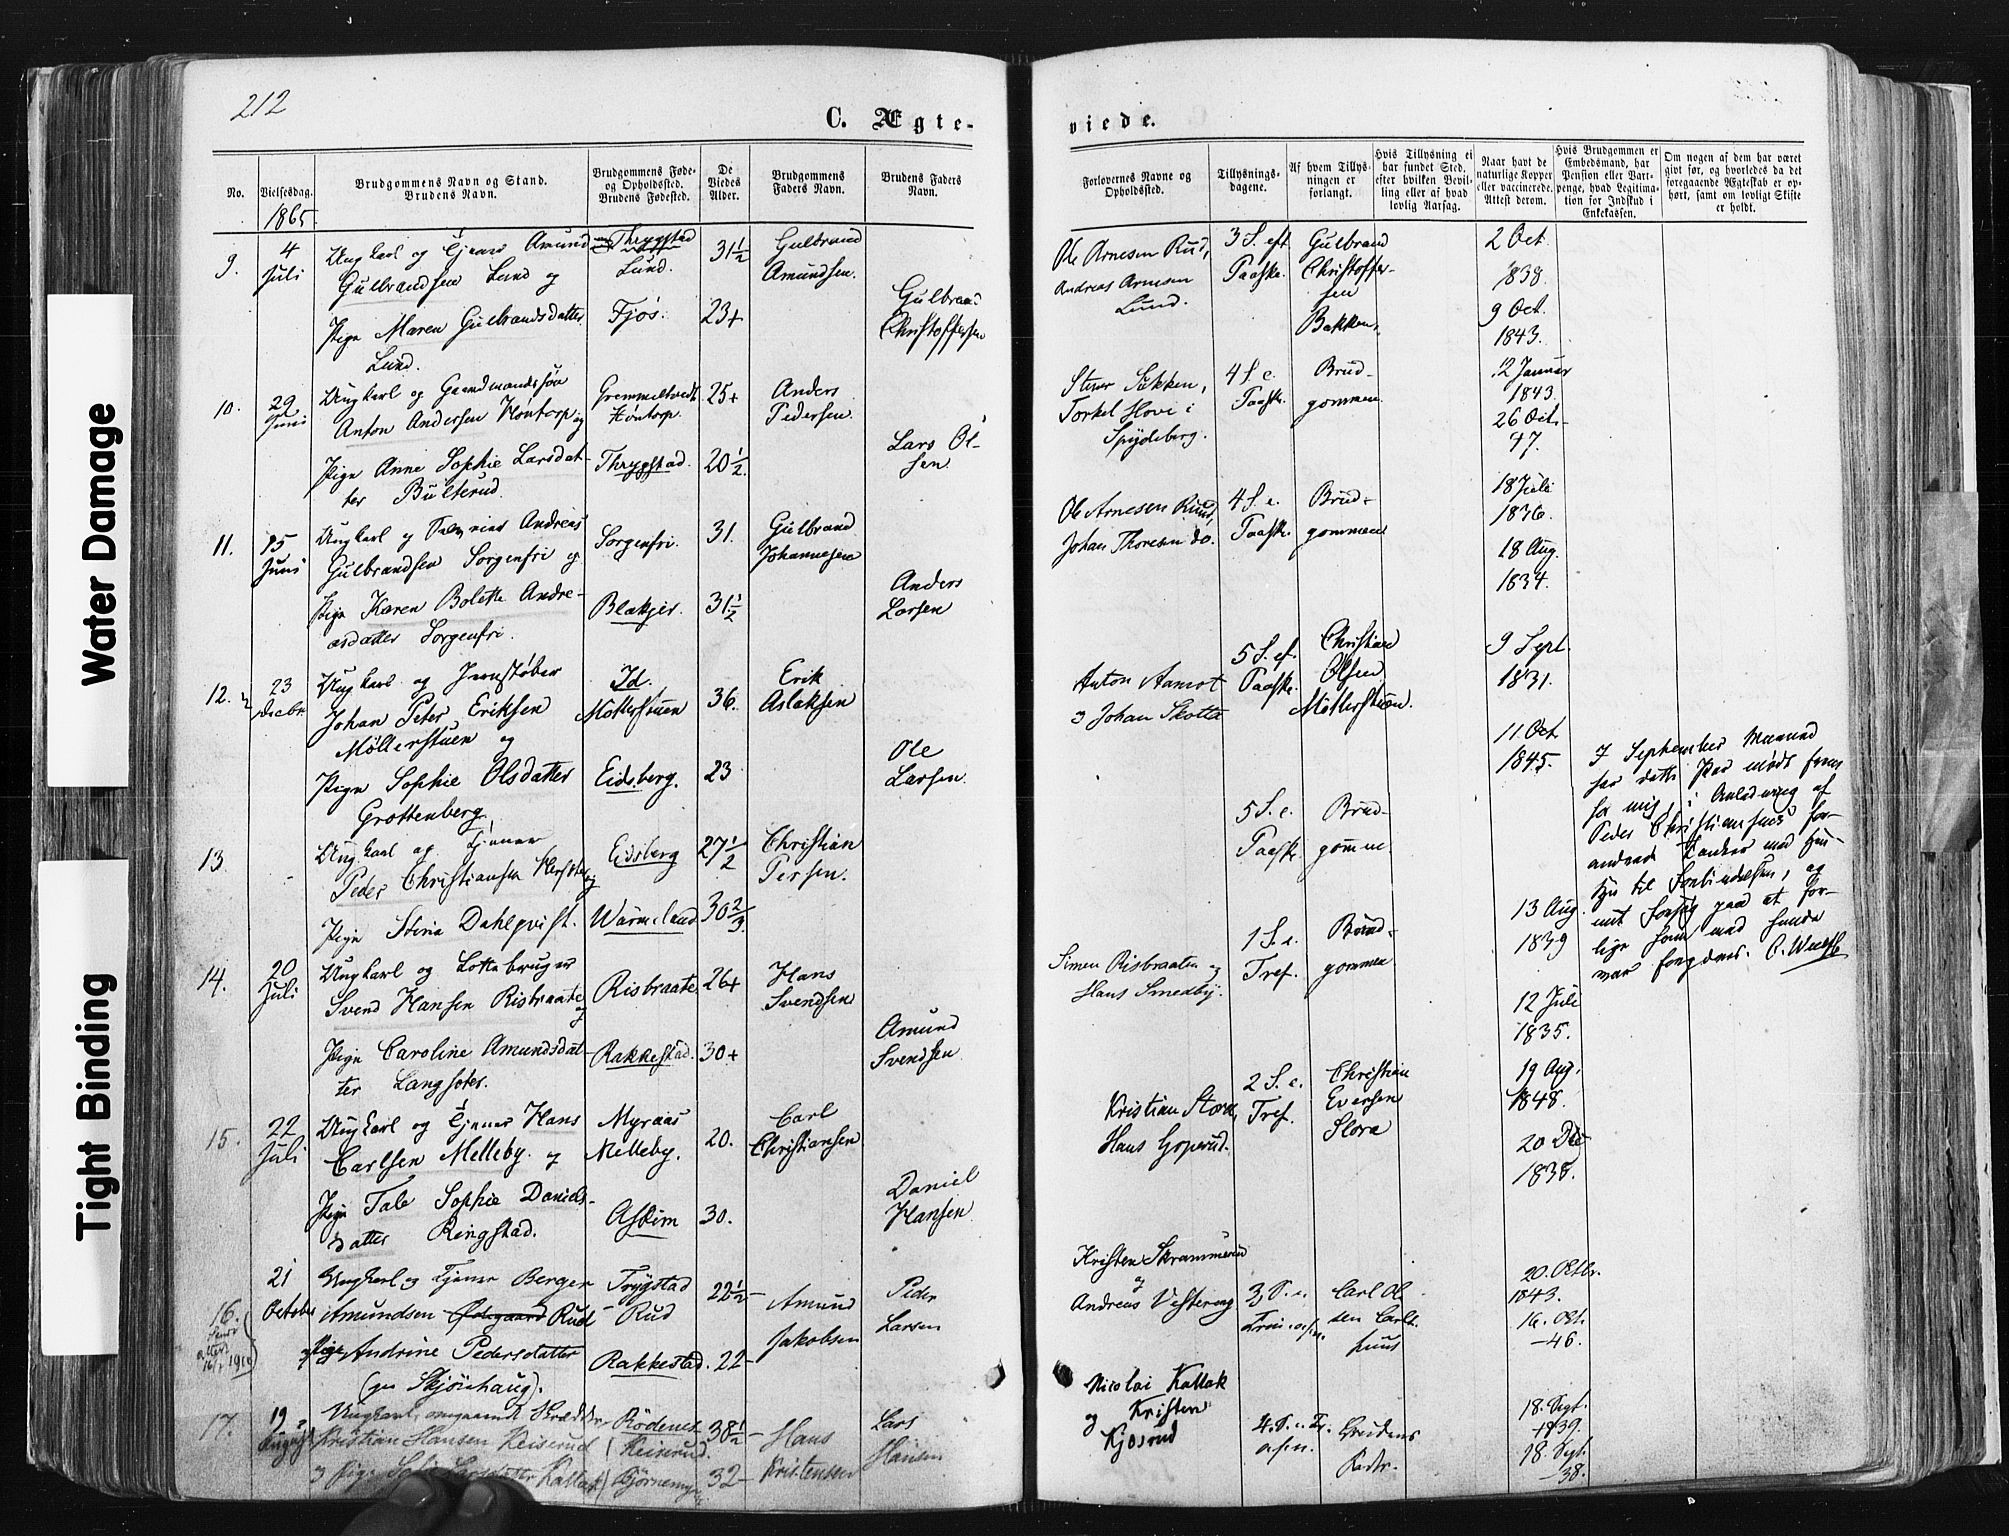 Water Damage
Tight Binding
212
C. Ægte-
viede.
No.
Vielsesdag.
Brudgommens Navn og Stand.
Brudens Navn.
Brudgommens Føde-
og Opholdssted.
Brudens Fødested.
De
Viedes
Alder.
Brudgommens
Faders Navn.
Brudens Faders
Navn.
Forlovernes Navne og
Opholdssted.
Tillysnings-
dagene.
Af hvem Tillys-
ningen er
forlangt.
Hvis Tillysning ei
har fundet Sted,
efter hvilken Bevil-
ling eller af hvad
lovlig Aarsag.
Naar havt de
naturlige Kopper
eller vaccinerede.
Attest derom.
Hvis Brudgommen er
Embedsmand, har
Pension eller Vart-
penge, hvad Legitima-
tion for Indskud i
Enkekassen.
Om nogen af dem har været
gift før, og hvorledes da det
foregaaende Ægteskab er op-
hørt, samt om lovligt Skifte
er holdt.
1865.
9.
4
Juli
Ungkarl og Tjener Amund
Gulbrandsen Lund og
Pige Maren Gulbrandsdatter
Lund.
Thrygstad
Lund.
Fjøs.
31½
23+
Gulbrand
Amundsen.
Gulbrand
Christoffersen
Ole Arnesen Rud,
Andreas Arnesen
Lund.
3 S. eft
Paaske.
Gulbrand
Christoffer-
sen
Bakken.
2 Oct.
1838.
9 Oct.
1843.
10.
29
Juni
Ungkarl og Gaardmandssøn
Anton Andersen Høntorp og
Pige Anne Sophie Larsdat-
ter Bulterud.
Gremmeltvedt
Høntorp.
Thrygstad.
25+
20½
Anders
Pedersen
Lars Ol-
sen.
Torkel Hovi i
Spydeberg.
4 S e.
Paaske.
Brud-
gommen
12 Januar
1843.
26 Oct.
47.
11.
15
Juni
Ungkarl og Andreas
Gulbrandsen Sorgenfri og
Pige Karen Bolette Andre-
asdatter Sorgenfri.
Sorgenfri.
Blakjer.
31.
31½
Gulbrand
Johannesen
Anders
Larsen
Ole Arnesen Ruud,
Johan Thoresen do.
4 S. e.
Paaske.
Brud-
gommen
18 Juli
1836.
18 Aug.
1834.
12.
23
Decbr
Ungkarl og Jernstøber
Johan Peter Eriksen
Möllerstuen og
Pige Sophie Olsdatter
Grottenberg.
Id.
Möllerstuen
Eidsberg.
36.
23
Erik
Aslaksen
Ole
Larsen.
Anton Aamot
Johan Skotta
5 S. ef.
Paaske.
Christian
Olsen
Möllerstuen.
9 Sept.
1831.
11 Oct
1845.
13.
Ungkarl og Tjener
Peder Christiansen og
Pige Stina Dahlqvist.
Eidsberg
Wärmeland.
27½
30⅔
Christian
Persen.
5 S. e.
Paaske.
Brud-
gomme.
I September Maaned
har dette Par mødt frem
for mig, i Anledning af
Peder Christiansens for-
andrede Tanker med Hen-
syn til Forbindelsen, og
mit Forsøg paa at for-
lige ham med hende
var forgjæves.
14.
20
Juli
Ungkarl og Lottebruger
Svend Hansen Risbraate
og
Pige Caroline Amundsdat-
ter Langsæter.
Risbraate
Rakkestad.
26+
30+
Hans
Svendsen
Amund
Svendsen
Simen Risbraaten og
Hans Smedby.
1 S. e.
Tref.
Brud-
gommen
13 Aug.
1839
12 Juli
1835.
15.
22
Juli
Ungkarl og Tjener Hans
Carlsen Melleby. og
Pige Tale Sophie Daniels-
datter Ringstad.
Myraas
Melleby.
Askim
20.
30.
Carl
Christiansen
Daniel
Hansen
Kristian
Hans
2 S. e.
Tref.
Christian
Eversen
Slora
19 Aug.
1848.
20 Dec
1835.
16.
21
October
Ungkarl og Tjener Berger
Amundsen Rud
Pige Andrine Pedersdatter
Skjønhaug).
Trygstad
Rud
Rakkestad.
22½
22
Amund
Jakobsen
Peder
Larsen
Kristen Skrammerud
og
Andreas Vestereng
3 S. e
Carl Ol
sen Carls
huus
20. Octbr.
1843.
16. Oct.
-46.
17.
19
August
Ungkarl, omgaaende Skrædder
Kristian Hansen Keiserud
Rödenes
Keiserud.
Bjørnemyr
38½
32
Hans
Kristensen
Lars
Hansen
Nicolai Kallak
og Kristen
Kjosrud
4. S. e. Tr.
Brudens
18. Sept.
1839.
18. Sept.
-38.